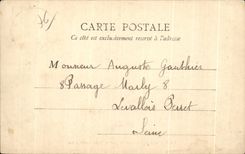 76)
CARTE POSTALE
Ce côté est exclusivement réservé à l'adresse
Monsieur Auguste Gauthier
8 Passage Marly 8
Levallois Perret
Seine